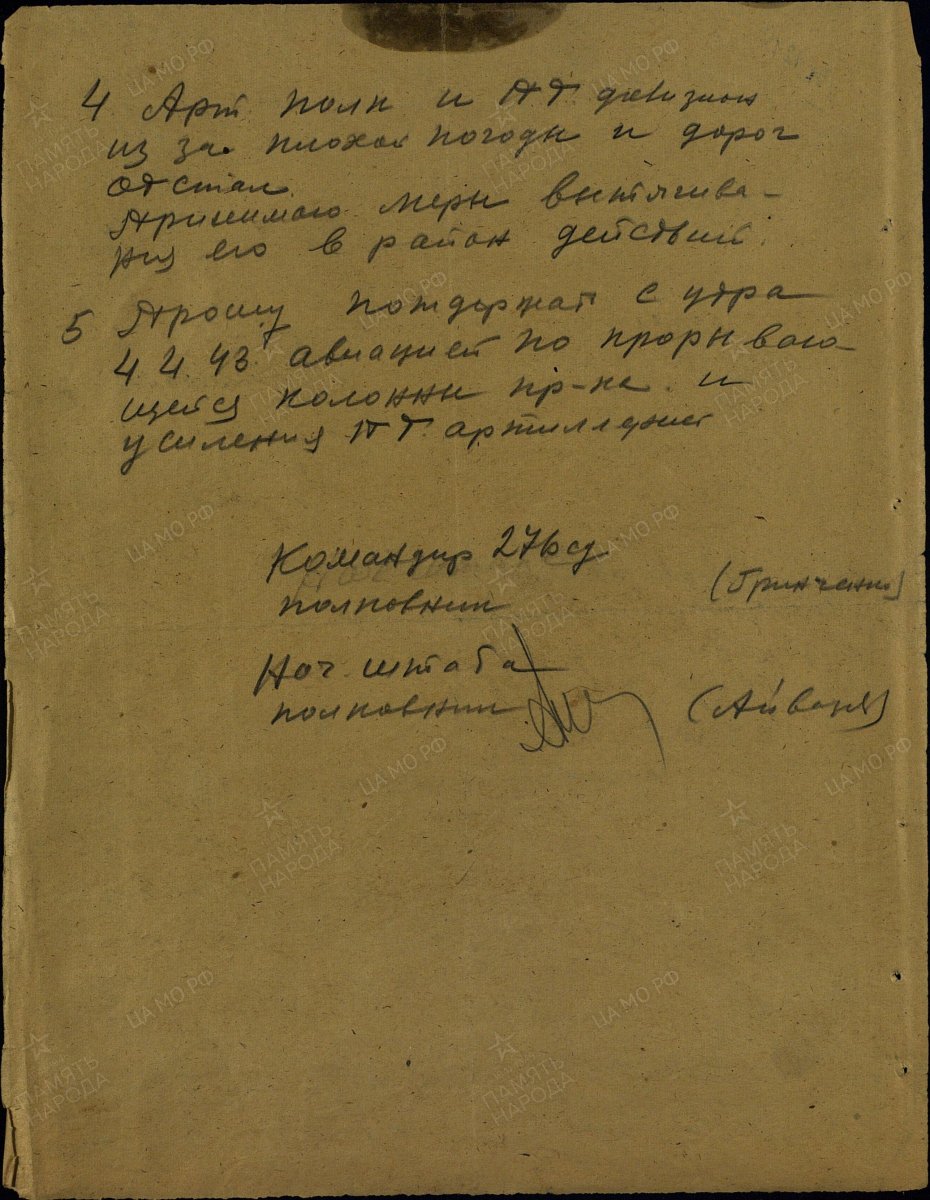 4 Арт полк и ПТ дивизион
из за плохой погоды и дорог
отстал.
Принимаю меры вытягива-
ния его в район действий.
5 Прошу поддержать с утра
4.4.43. авиацией по прорываю-
щейся колонны пр-ка. и
усиления ПТ. артиллерией
Командир 276сд
полковник (Гринченко)
Нач. штаба
полковник (Айвазя)
ПАМЯТЬ НАРОДА
ЦА МО РФ